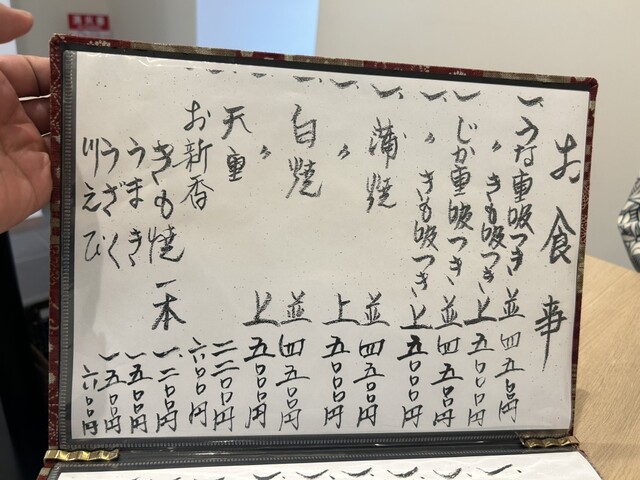 お食事
一、うな重 吸つき 並 四五〇〇円
〃 きも吸つき 上 五〇〇〇円
一、じか重 吸つき 並 四五〇〇円
〃 きも吸つき 上 五〇〇〇円
一、蒲焼 並 四五〇〇円
〃 上 五〇〇〇円
一、白焼 並 四五〇〇円
〃 上 五〇〇〇円
天重 二二〇〇円
お新香 六〇〇円
きも焼 一本 一、二〇〇円
うまき 一五〇〇円
うざく 一五〇〇円
川えび 六〇〇円